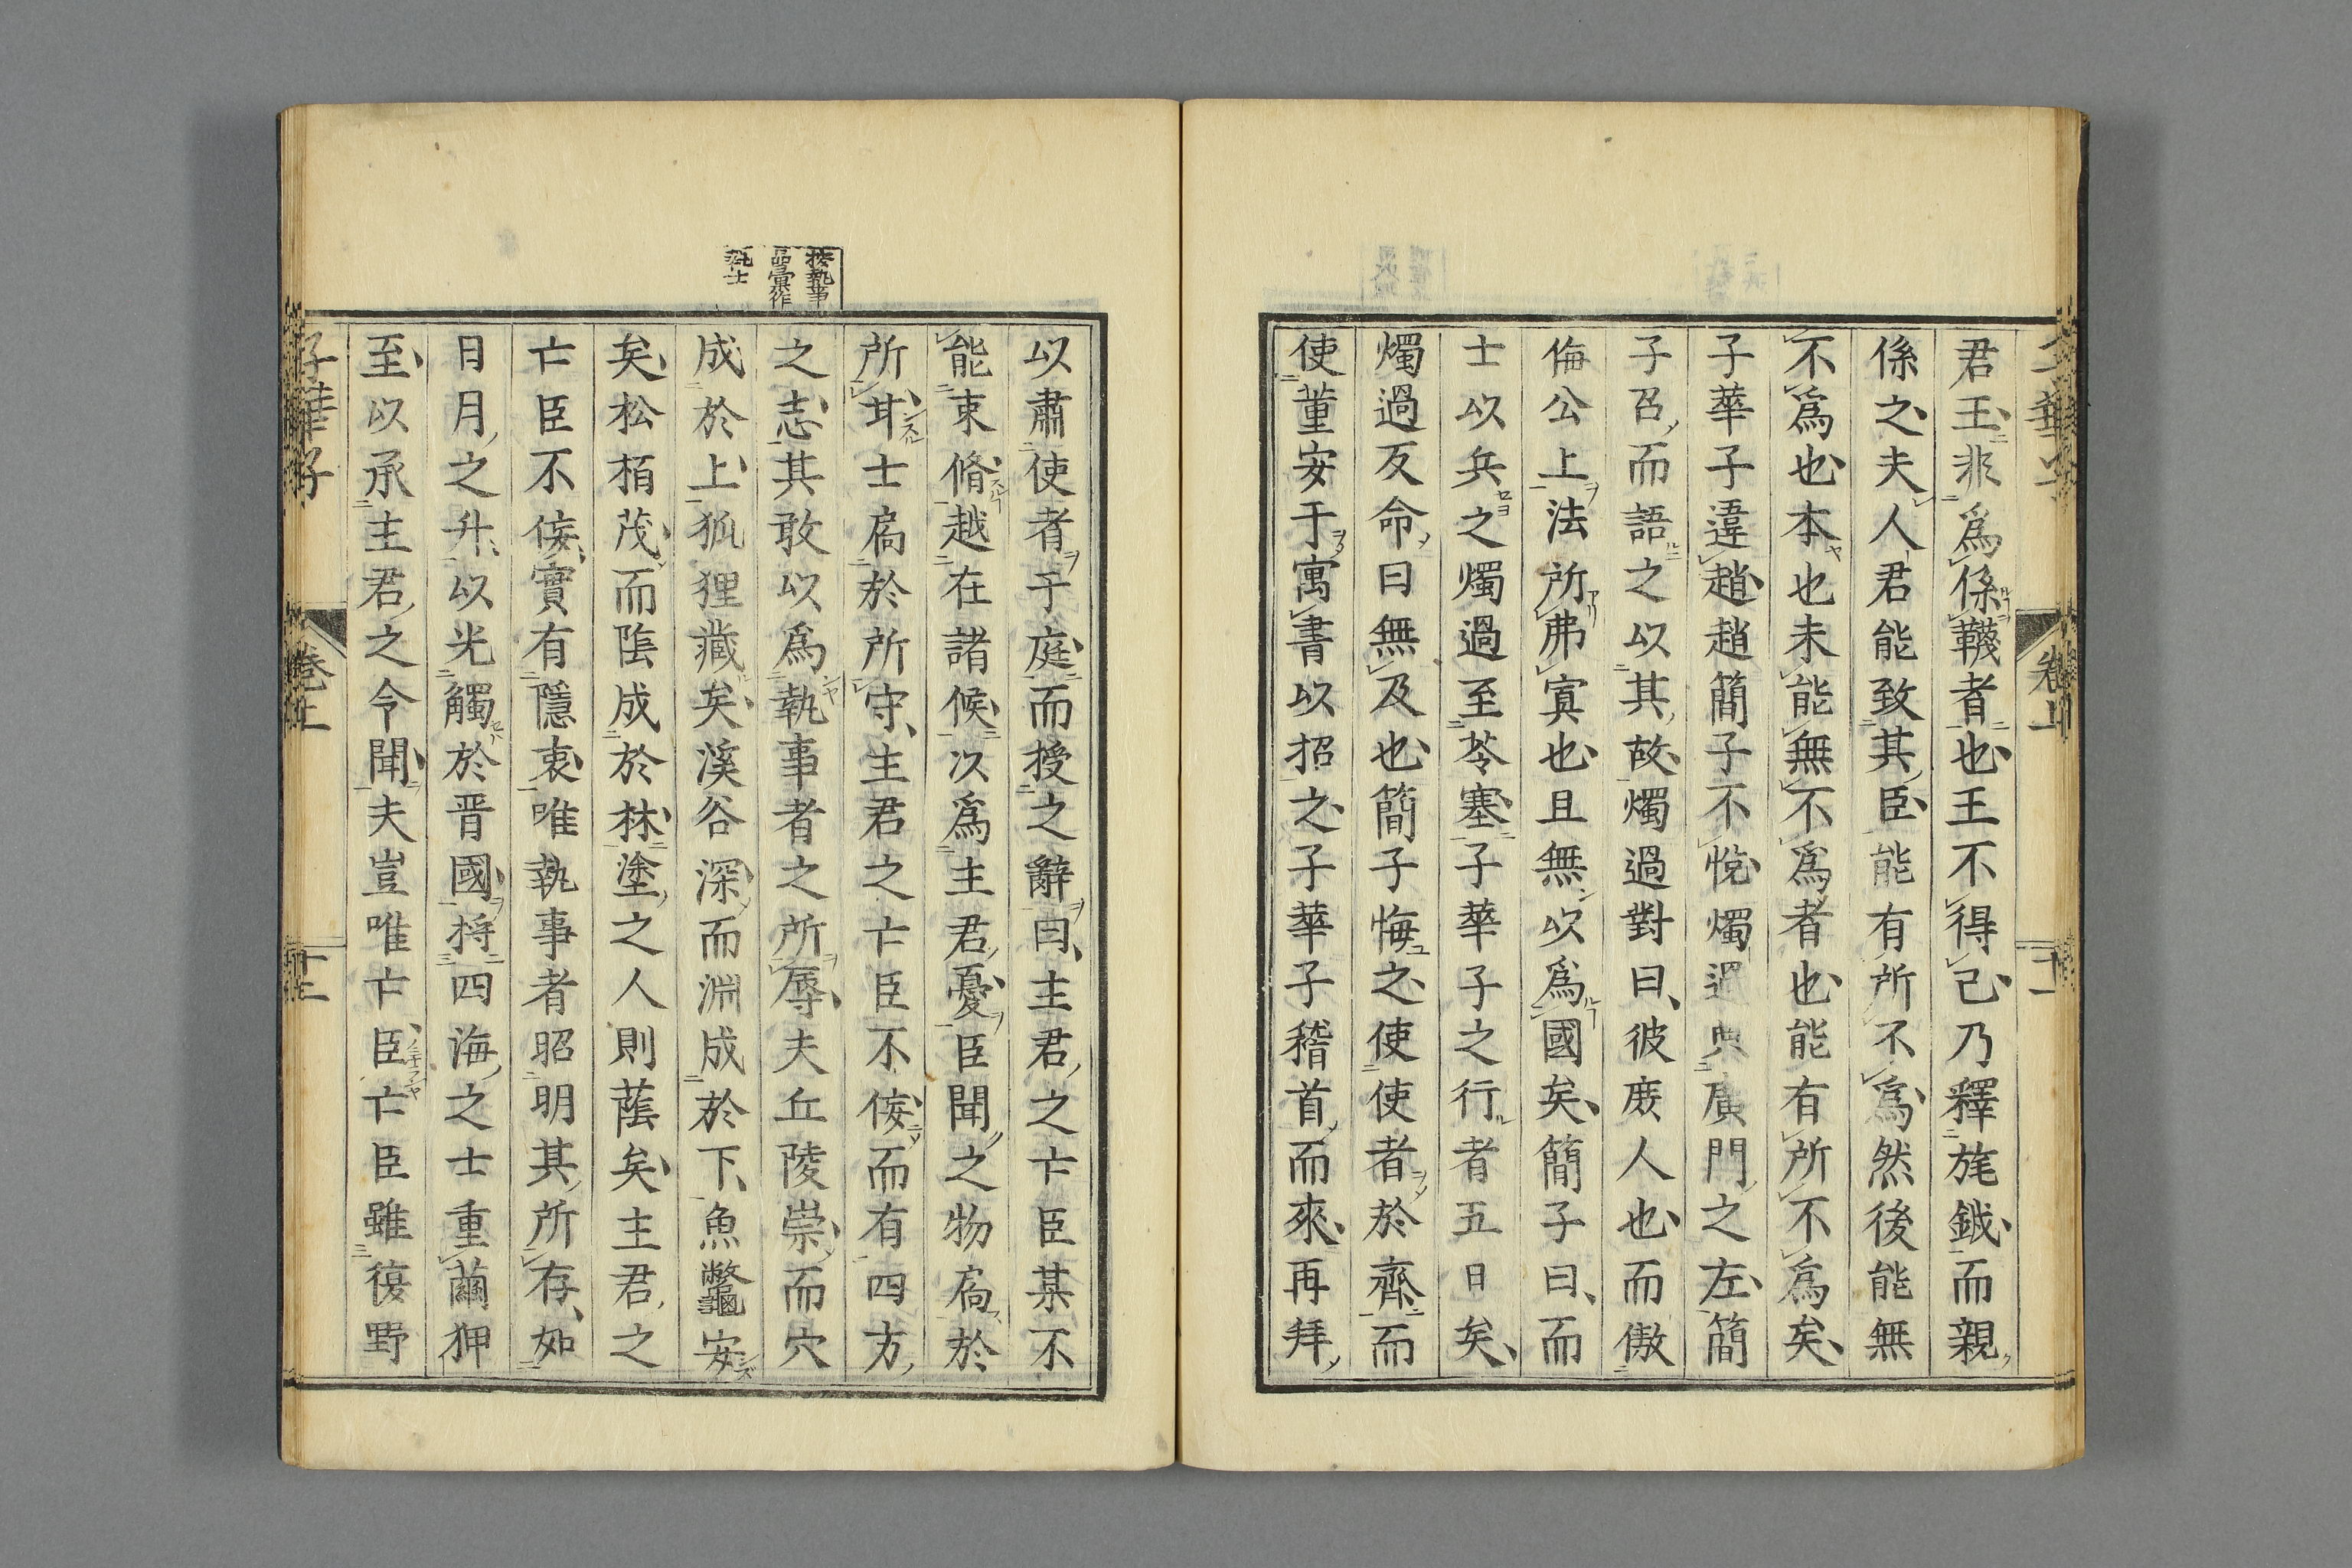 君王非爲係韈者也王不得已乃釋旄鉞而親
係之夫人君能致其臣能有所不爲然後能無
不爲也本也未能無不爲者也能有所不爲矣
子華子違趙趙簡子不悅燭過典廣門之左簡
子召而語之以其故燭過對曰彼庻人也而傲
侮公上法所弗寘也且無以爲國矣簡子曰而
士以兵之燭過至苓塞子華子之行者五日矣
燭過反命曰無及也簡子悔之使使者於齊而
使董安于寓書以招之子華子稽首而來再拜
卷上
十一
以肅使者于庭而授之辭曰主君之亡臣某不
能束脩越在諸候次爲主君憂臣聞之物扃於
所甘士扃於所守主君之亡臣不侫而有四方
之志其敢以爲執事者之所辱夫丘陵崇而穴
成於上狐狸藏矣溪谷深而淵成於下魚鼈安
矣松栢茂而陰成於林塗之人則蔭矣主君之
亡臣不侫實有隱衷唯執事者昭明其所存如
日月之升以光觸於晋國將四海之士重繭狎
至以承主君之令聞夫豈唯亡臣亡臣雖復野
按執事
品彙作
子華子
卷上
十二